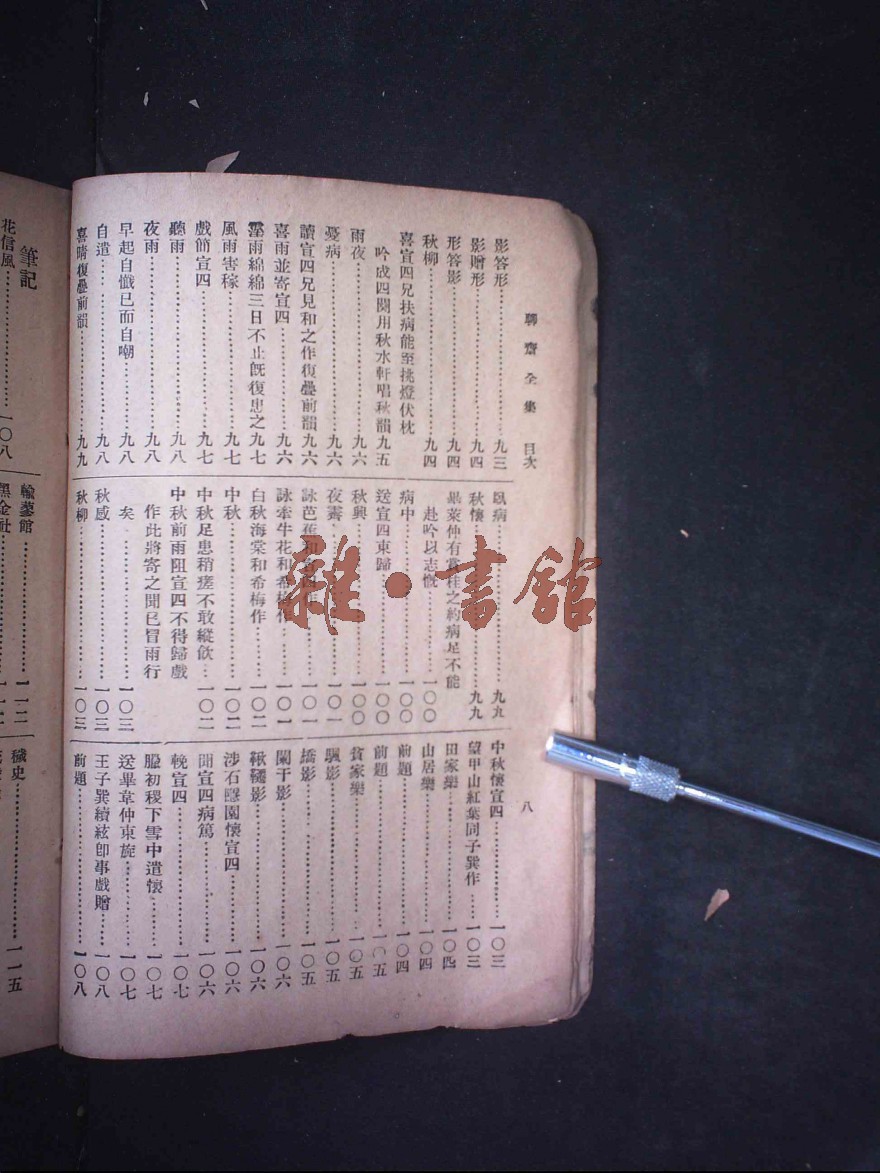 聊齋全集 目次
八
影答形……九三
影贈形……九四
形答影……九四
秋柳……九四
喜宣四兄扶病能至挑燈伏枕
吟成四闋用秋水軒唱秋韻九五
雨夜……九六
憂病……九六
讀宣四兄見和之作復疊前韻九六
喜雨並寄宣四……九六
霪雨綿綿三日不止既復患之九七
風雨害稼……九七
戲簡宣四……九七
聽雨……九八
夜雨……九八
早起自懺已而自嘲……九八
自遣……九八
喜晴復疊前韻……九九
臥病……九九
秋懷……九九
畢萊仲有賞桂之約病足不能
赴吟以志慨……一〇〇
病中……一〇〇
送宣四東歸……一〇〇
秋興……一〇〇
夜霽……一〇一
詠芭蕉和……一〇一
詠牽牛花和希梅作……一〇一
白秋海棠和希梅作……一〇二
中秋……一〇二
中秋足患稍瘥不敢縱飲……一〇二
中秋前雨阻宣四不得歸戲
作此將寄之聞已冒雨行
矣……一〇三
秋感……一〇三
秋柳……一〇三
中秋懷宣四……一〇三
望甲山紅葉同子巽作……一〇三
田家樂……一〇四
山居樂……一〇四
前題……一〇四
前題……一〇五
貧家樂……一〇五
颿影……一〇五
橋影……一〇五
闌干影……一〇六
鞦韆影……一〇六
涉石隱園懷宣四……一〇六
聞宣四病篤……一〇六
輓宣四……一〇七
臘初稷下雪中遣懷……一〇七
送畢韋仲東旋……一〇七
王子巽續絃卽事戲贈……一〇八
前題……一〇八
筆記
花信風……一〇八
輸蔘館……一一二
黑金社……一一二
穢史……一一五
雜·書館